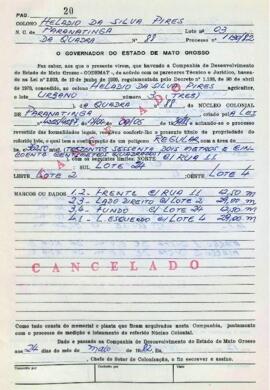 PAG 20
COLONO HELADIO DA SILVA PIRES
N. C. de PARANATINGA Lote nº 03
DA QUADRA nº 88 Processo nº
O GOVERNADOR DO ESTADO DE MATO GROSSO
Faz saber, aos que o presente virem, que havendo a Companhia de Desenvolvimento
do Estado de Mato Grosso - CODEMAT -, de acordo com os pareceres Técnico e Jurídico, basea-
de 1978, concedido ao colono HELADIO DA SILVA PIRES agricultor,
o lote URBANO 3 (TRES)
da QUADRA 88 DO NÚCLEO COLONIAL
DE PARANATINGA
revestido das formalidades legais, resolveu conferir-lhe o presente título de propriedade do
referido lote, o qual tem a configuração de um polígono REGULAR com a área de
com os seguintes limites: NORTE C/ RUA 11
SUL LOTE 24
LESTE LOTE 2 OESTE LOTE 4
MARCOS OU DADOS 1.2 - FRENTE C/ RUA 11 12,50 m
2.3 - LADO DIREITO C/ LOTE 2 29,00 m
3.4 - FUNDO C/ LOTE 24 12,50 m
4.1 - L. ESQUERDO C/ LOTE 4 29,00 m
CANCELADO
Como tudo consta do memorial e planta que ficam arquivados nesta Companhia, juntamente
com o processo de medição e loteamento do referido Núcleo Colonial.
Dado e passado na Companhia de Desenvolvimento do Estado de Mato Grosso
aos 24 dias do mês de maio de 1982. Eu
, Chefe do Setor de Colonização, o fiz escrever e assino.